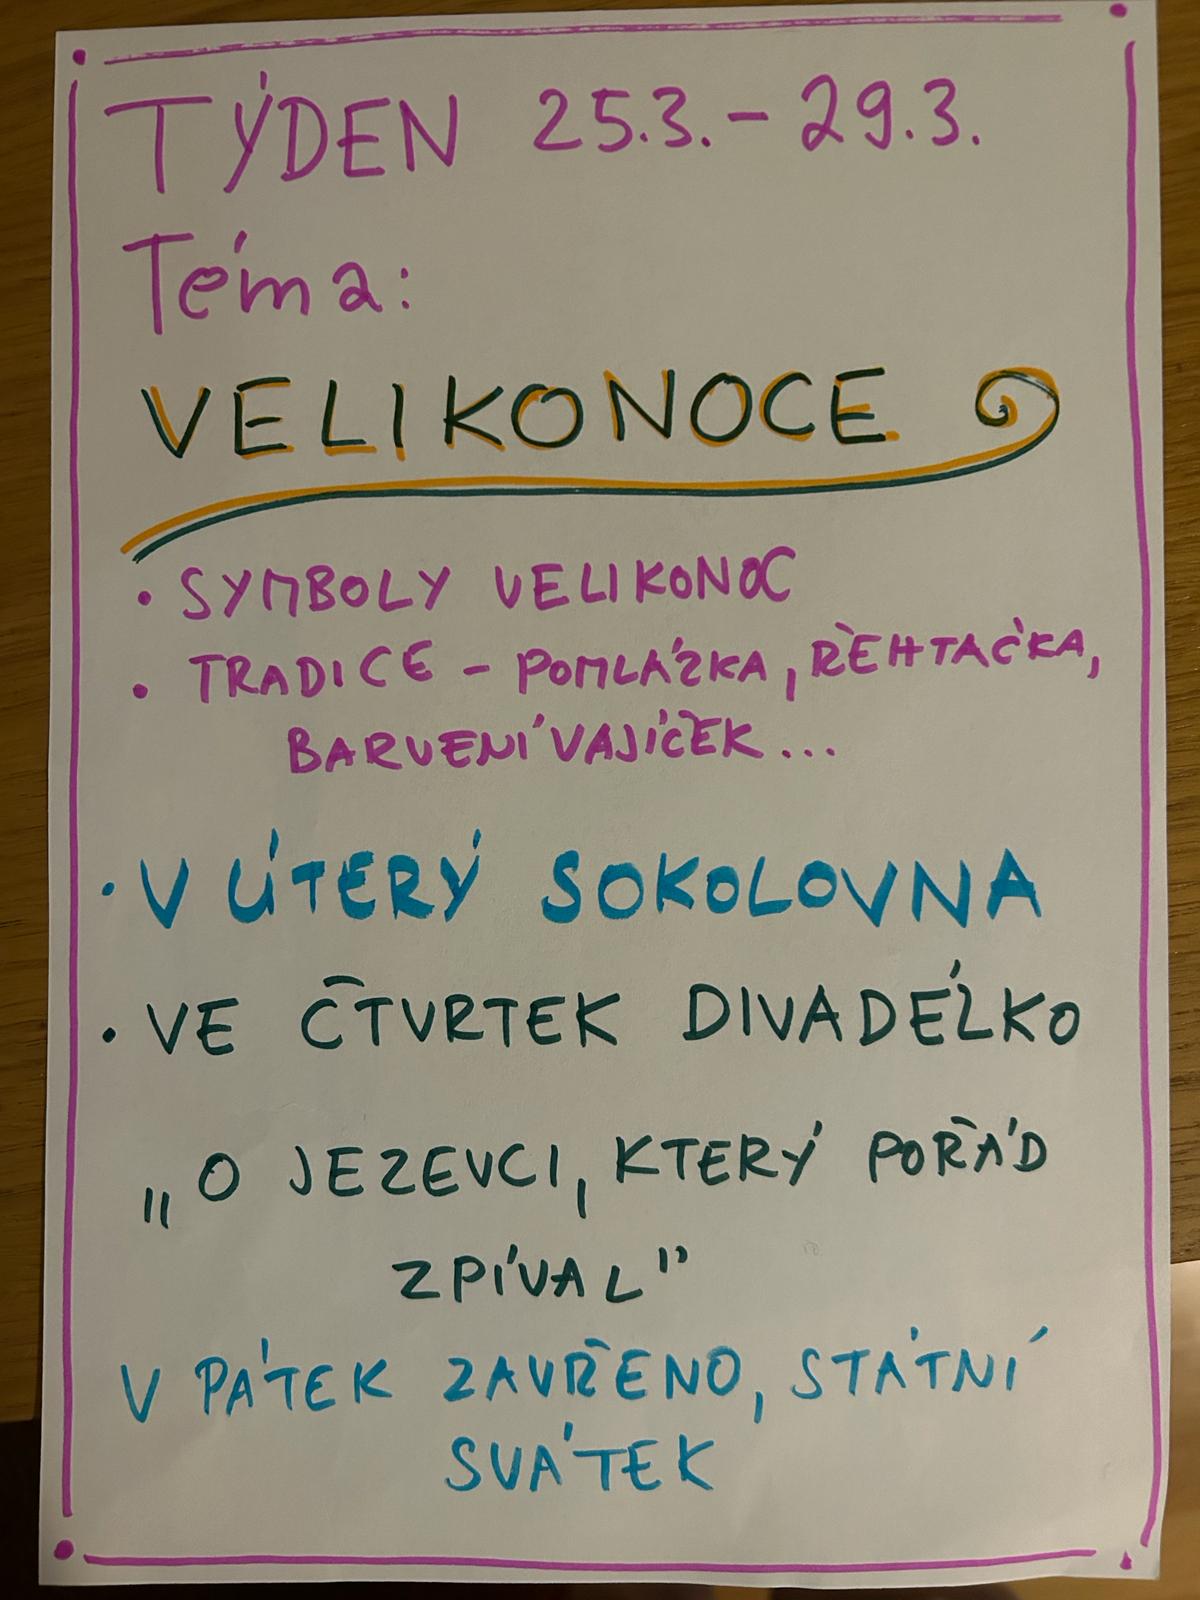 TÝDEN 25.3. - 29.3.
Téma:
VELIKONOCE
• SYMBOLY VELIKONOC
• TRADICE - POMLÁZKA, ŘEHTAČKA,
BARVENÍ VAJÍČEK...
• V ÚTERÝ SOKOLOVNA
• VE ČTVRTEK DIVADÉLKO
„O JEZEVCI, KTERÝ POŘÁD
ZPÍVAL"
V PÁTEK ZAVŘENO, STÁTNÍ
SVÁTEK